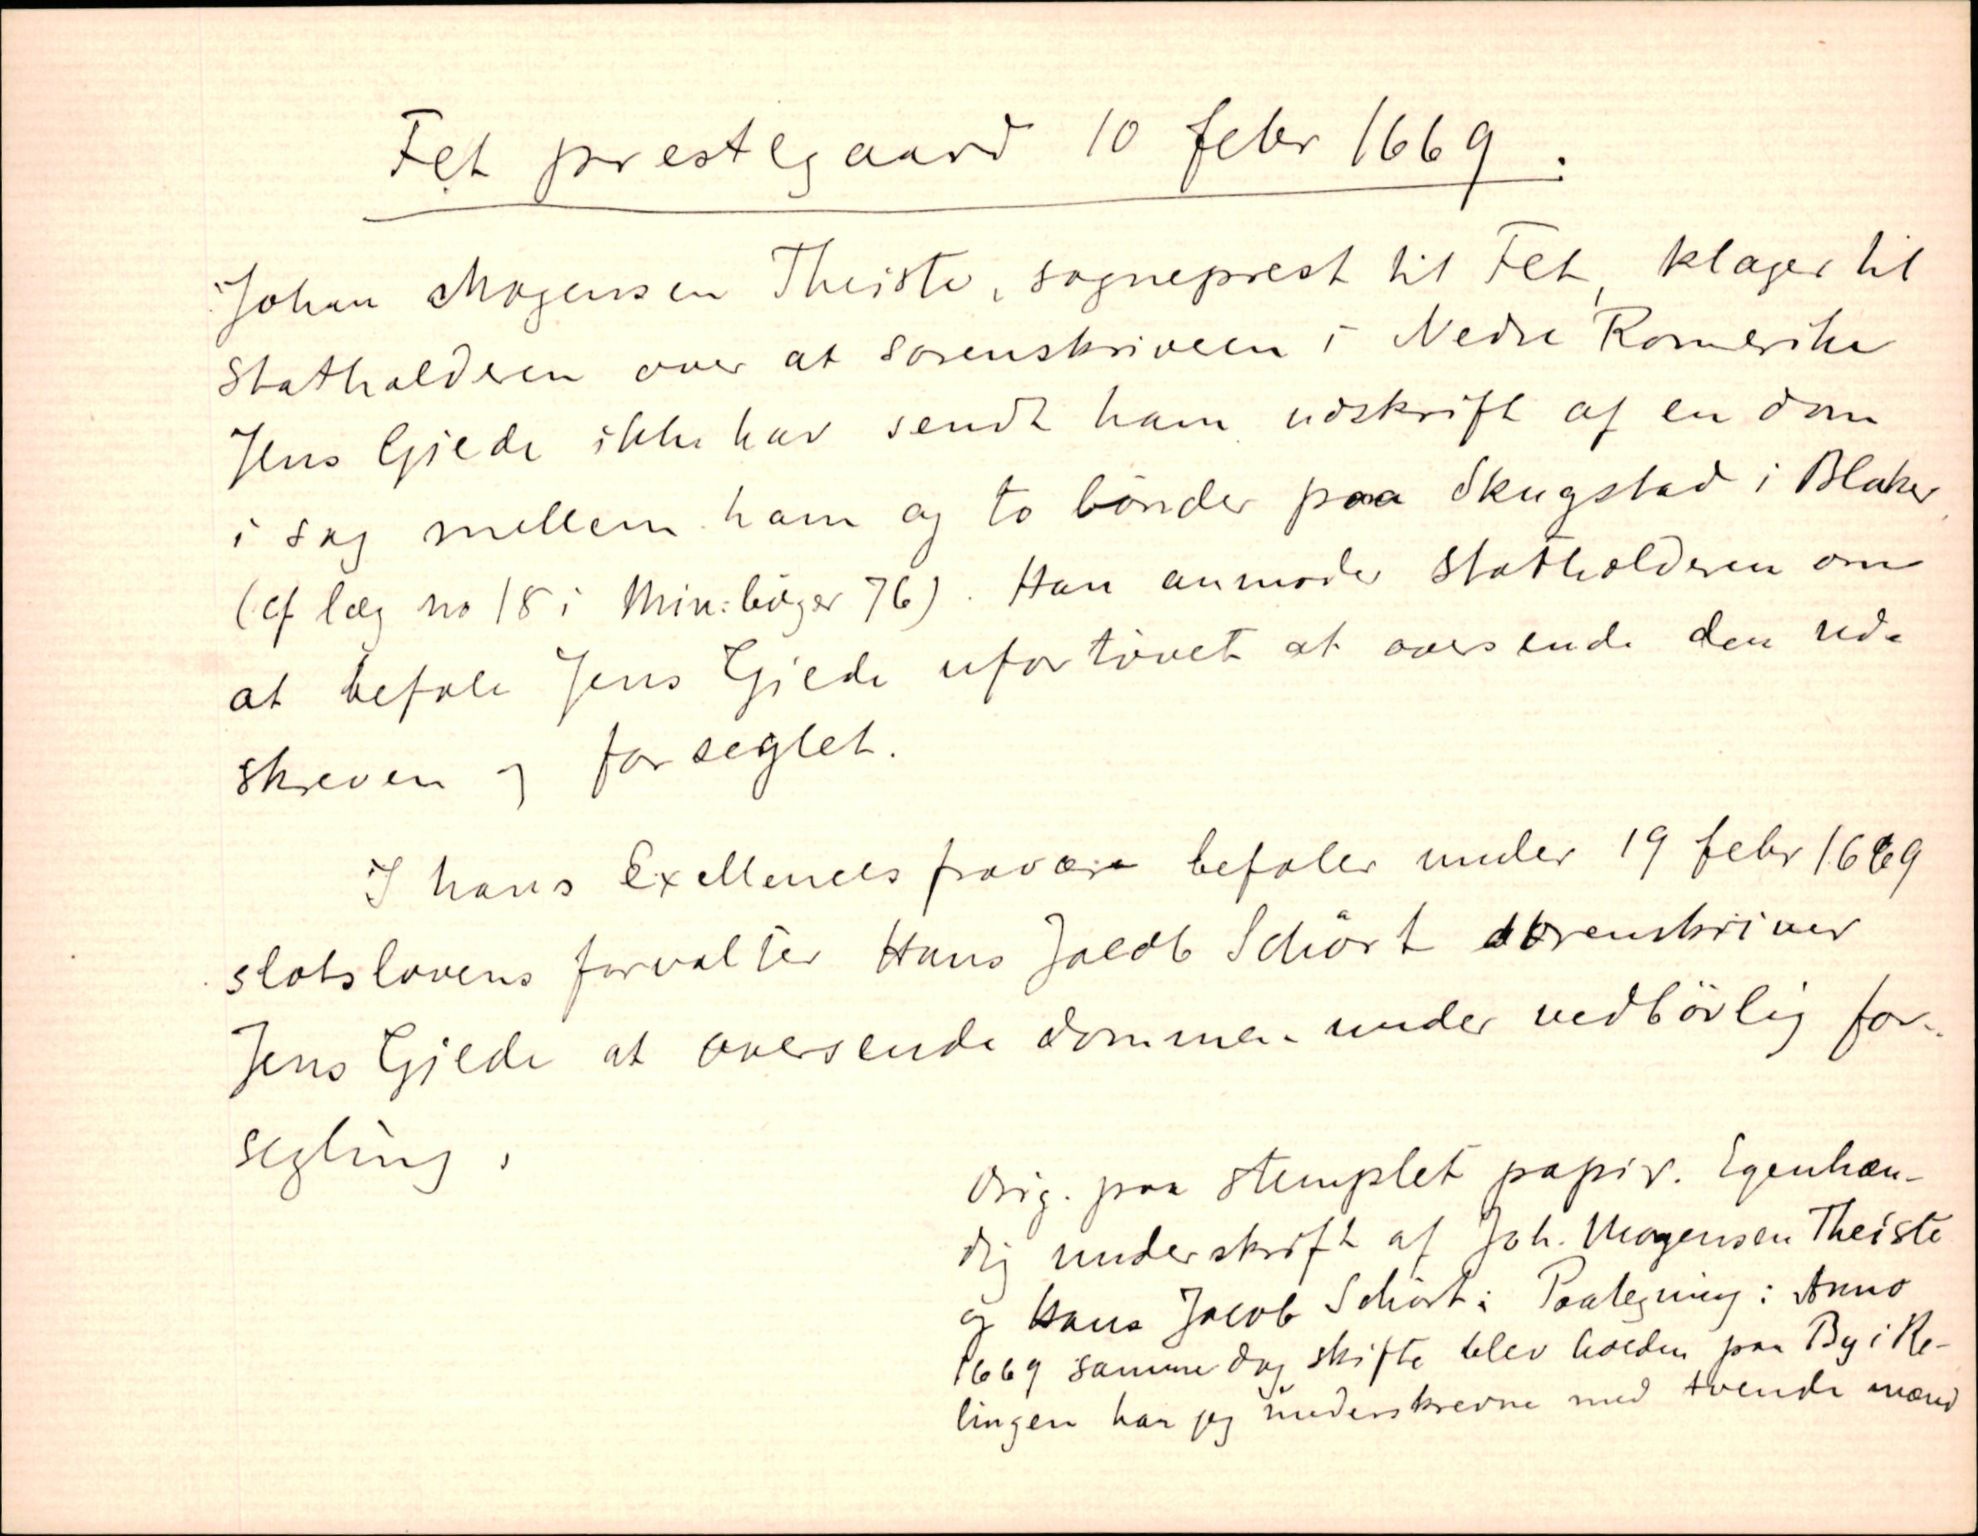 Fet prestegaard 10 febr 1669.
Johan Mogensen Theiste, sogneprest til Fet, klager til
statholderen over at sorenskriveren i Nedre Romerike
Jens Gjede ikke har sendt ham udskrift af en dom
i sag mellem ham og to bönder paa Skugstad i Blaker
(cf læg no 18 i Min: böger 76). Han anmoder statholderen om
at befale Jens Gjede ufortövet at oversende den ud-
skreven og forseglet.
I hans Exellences fravære befaler under 19 febr 1669
slotslovens forvalter Hans Jacob Schört sorenskriver
Jens Gjede at oversende dommen under vedbörlig for-
segling.
Orig. paa stemplet papir. Egenhæn-
dig underskrift af Joh. Mogensen Theiste
og Hans Jacob Schört: Paategning: Anno
1669 samme dag skifte blev holden paa By i Re-
lingen har jeg underskrevne med tvende mænd